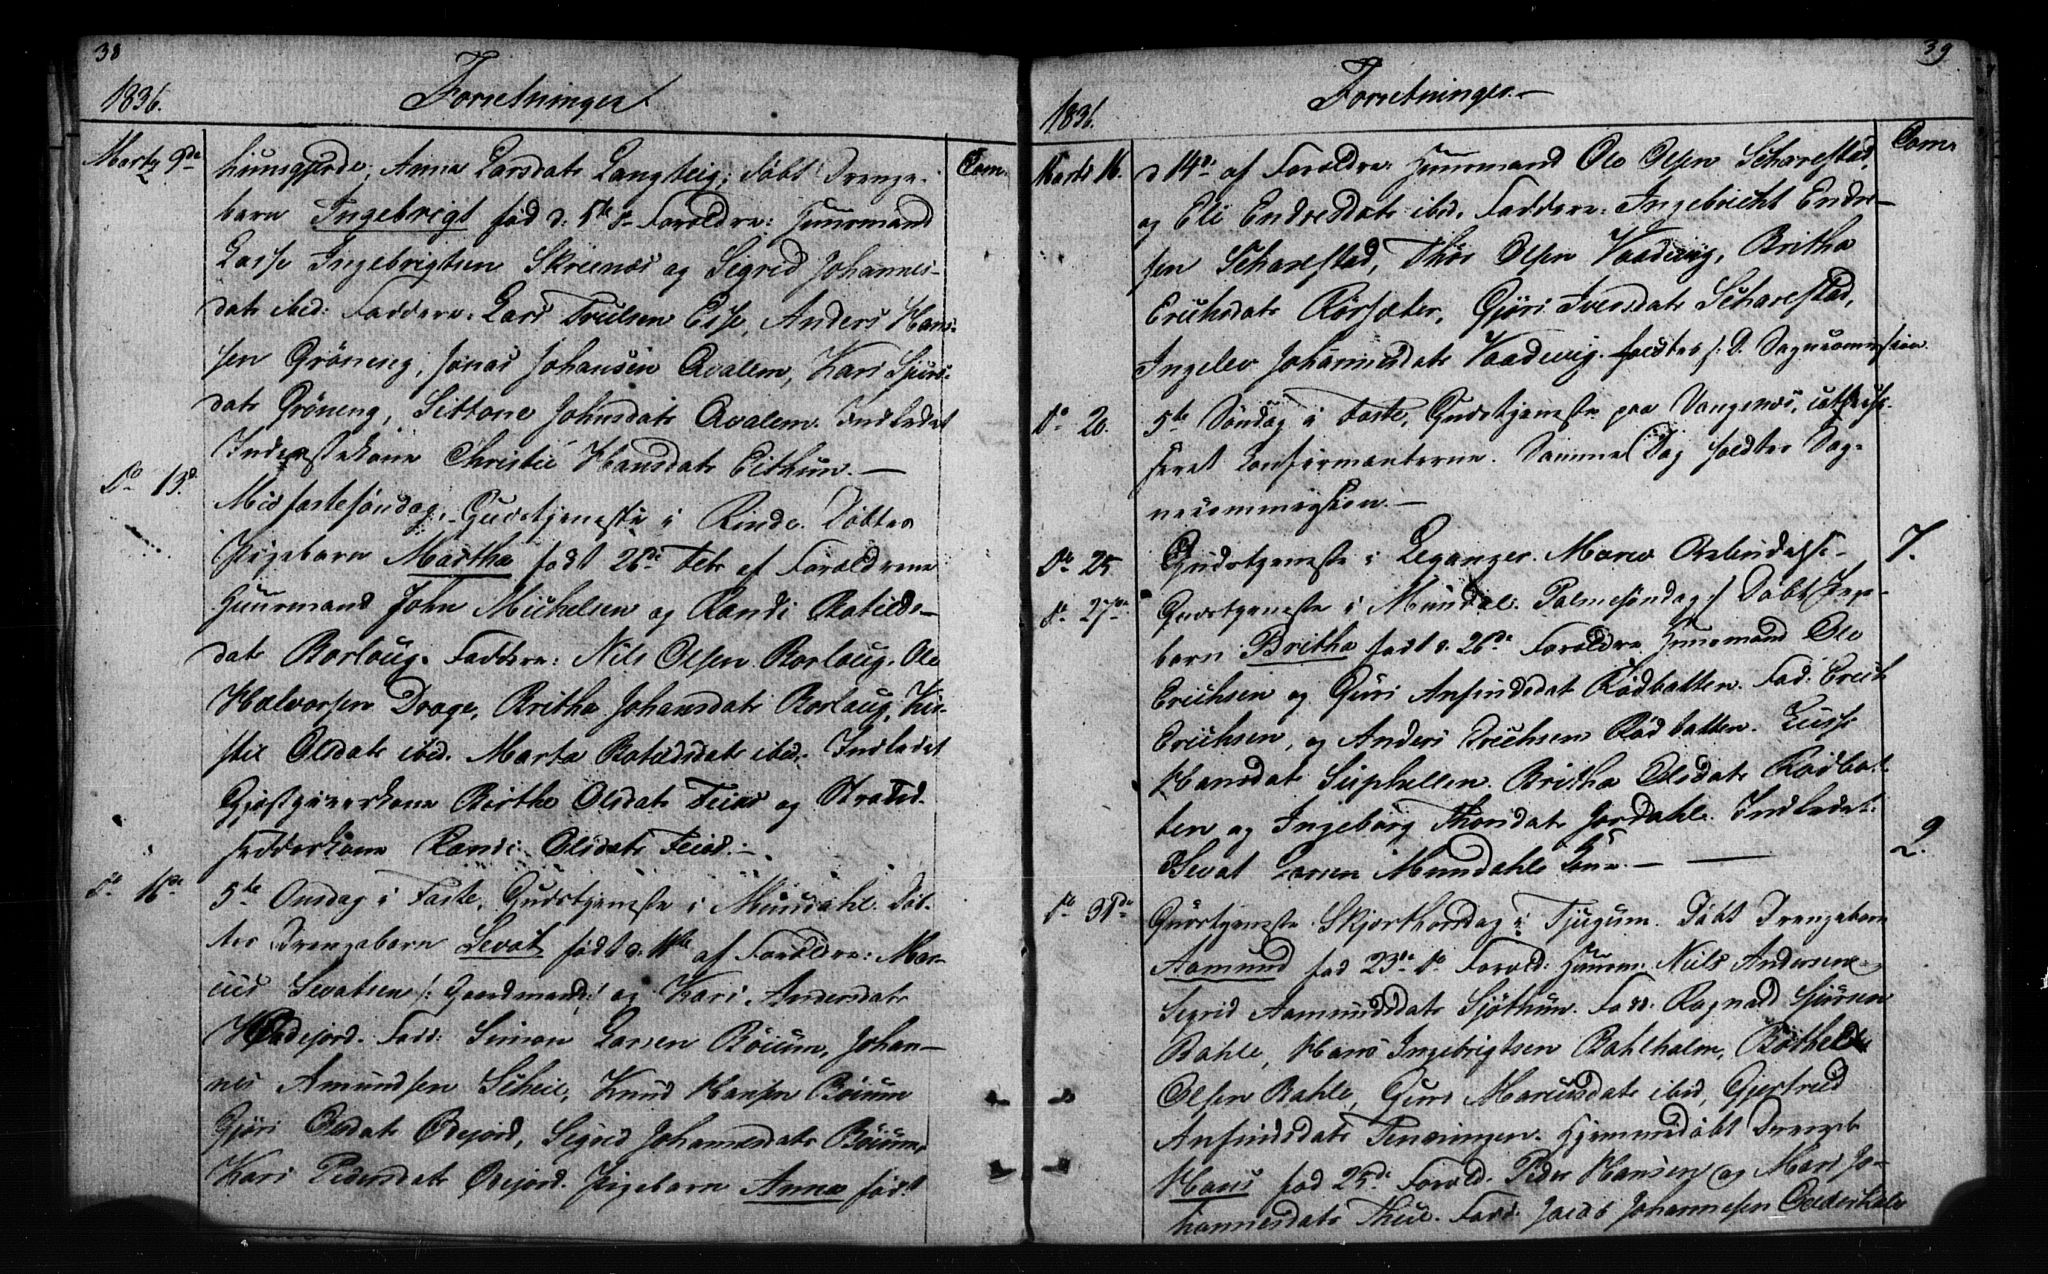 38
1836.
Forretninger
Martz 9de
huusgjerde, Anna Larsdatr Langteig; Døbt Drenge-
Com.
barn Ingebrigt fød d: 5te ds Forældre: Huusmand
Lasse Ingebrigtsen Skreenæs og Sigrid Johannes-
datr ibid: Faddere: Lars Truelsen Esse, Anders Han-
sen Grøneng, Jonas Johansen Avalem, Kari Siurs-
datr Grøneng, Sittone Johnsdatr Avalem. Indledet
Inderstekone Christie Hansdatr Eithun. —
Do 13d
Midfastesøndag, Gudstjeneste i Rinde. Døbtes
Pigebarn Martha født 26de Febr af Forældrene
Huusmand John Michelsen og Randi Botilds-
datr Borloug. Faddere: Nils Olsen Borloug, Ole
Halvorsen Drage, Britha Johansdatr Borloug, Kir-
stie Olsdatr ibid. Marta Botildsdatr ibid. Indledet
Gjæstgiverkone Birthe Olsdatr Feios og
Randi Olsdatr Feios. —
Do 16de
5te Onsdag i Faste, Gudstjeneste i Mundahl. Døb-
tes Drengebarn Sevat født d. 11te af Forældre: Mar-
cus Sevatsen /: Gaardmand :/ og Kari Andersdatr
Ødejord. Fadd: Simon Larsen Bøium, Johan-
nes Amundsen Scheie, Knud Hansen Bøium
Gjøri Olsdatr Ødejord, Sigrid Johannesdatr Bøium,
Kari Pedersdatr Ødejord. Pigebarn Anna født
39
1836.
Forretninger. —
Martz 16.
d 14de af Forældre Huusmand Ole Olsen Scharestad,
Com.
og Eli Endresdatr ibid. Faddere: Ingebricht Endre-
sen Scharestad, Thøs Olsen Vaadevig, Britha
Erichsdatr Rørsæter, Gjøri Iversdatr Scharestad,
Ingelev Johannesdatr Vaadevig. holdtes s: D. Sognecommission
Do 20.
5te Søndag i Faste, Gudstjeneste paa Vangsnæs, catechise-
seret Confirmanterne. Samme Dag holdtes Sog-
necommission. —
Do 25
Gudstjeneste i Leganger. Mariæ Bebudelse-
7.
Do 27de
Gudstjeneste i Mundal. Palmesøndag :/ Døbt Pige-
barn Britha født d. 26de Forældre Huusmand Ole
Erichsen og Guri Anfindsdat Rødbatten. Fad. Erich
Erichsen, og Anders Erichsen Rødbatten.
Hansdat Suphellen. Britha Olsdatr Rødbat-
ten og Ingeborg Thorsdatr Jordahl. Indledet:
Sevat Larsen Mundahls Kone. —
2.
Do 31de
Gudstjeneste Skjærthorsdag i Tjugum. Døbt Drengebarn
Aamund fød 23de ds Foræld: Huusm: Niels Andersen
Sigrid Aamundsdatr Sjøthun. Fadd: Ragnald Siursen
Bahle, Hans Ingebrigtsen Bahlholm, Bothild
Olsen Bahle, Guri Marcusdatr ibid, Gjertrud
Anfindsdatr Tenningen. Hjemmedøbt Drengeb
Hans fød 25de. Foræld. Peder Hansen og Mari Jo-
hannesdatr Thue. Fadd: Jacob Johannesen